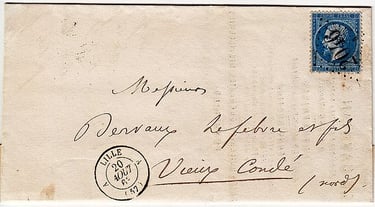 2046
Messieurs
Dervaux Lefebvre et fils
Vieux Condé
(nord)
LILLE
20
AOUT
(57)